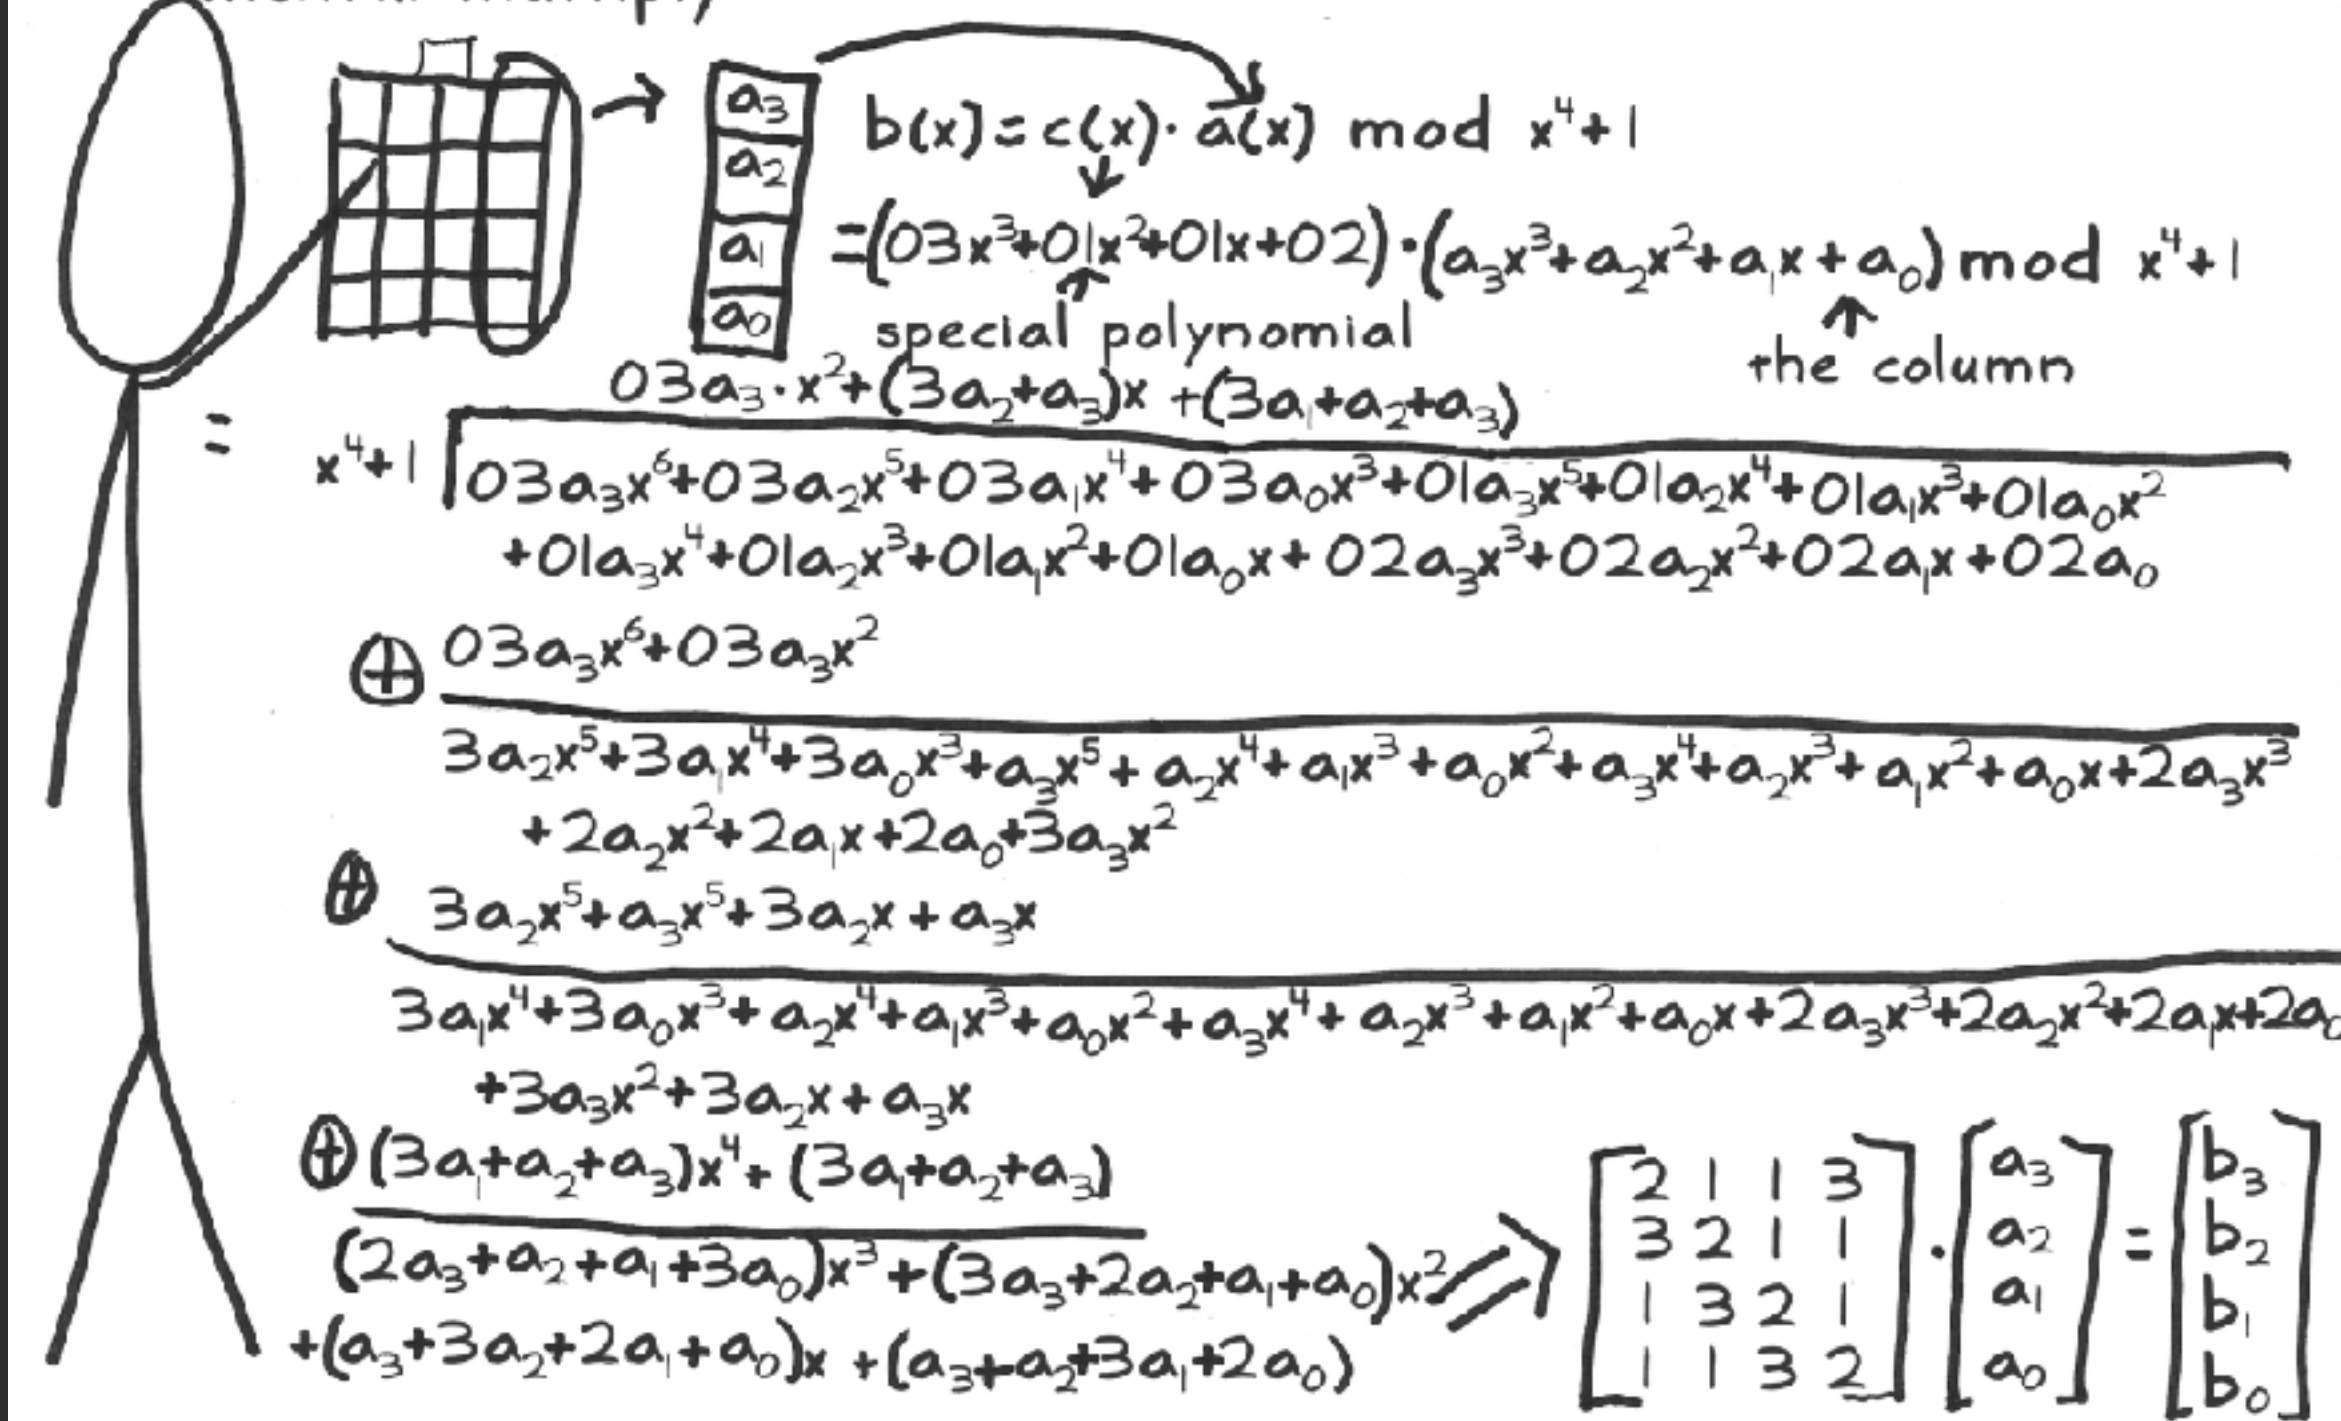 a₃
a₂
a₁
a₀
b(x)=c(x)·a(x) mod x⁴+1
=(03x³+01x²+01x+02)·(a₃x³+a₂x²+a₁x+a₀) mod x⁴+1
special polynomial
the column
03a₃·x²+(3a₂+a₃)x+(3a₁+a₂+a₃)
=
x⁴+1 03a₃x⁶+03a₂x⁵+03a₁x⁴+03a₀x³+01a₃x⁵+01a₂x⁴+01a₁x³+01a₀x²
+01a₃x⁴+01a₂x³+01a₁x²+01a₀x+02a₃x³+02a₂x²+02a₁x+02a₀
⊕ 03a₃x⁶+03a₃x²
3a₂x⁵+3a₁x⁴+3a₀x³+a₃x⁵+a₂x⁴+a₁x³+a₀x²+a₃x⁴+a₂x³+a₁x²+a₀x+2a₃x³
+2a₂x²+2a₁x+2a₀+3a₃x²
⊕ 3a₂x⁵+a₃x⁵+3a₂x+a₃x
3a₁x⁴+3a₀x³+a₂x⁴+a₁x³+a₀x²+a₃x⁴+a₂x³+a₁x²+a₀x+2a₃x³+2a₂x²+2a₁x+2a₀
+3a₃x²+3a₂x+a₃x
⊕ (3a₁+a₂+a₃)x⁴+(3a₁+a₂+a₃)
(2a₃+a₂+a₁+3a₀)x³+(3a₃+2a₂+a₁+a₀)x²
+(a₃+3a₂+2a₁+a₀)x+(a₃+a₂+3a₁+2a₀)
2 1 1 3 a₃ b₃
3 2 1 1 · a₂ = b₂
1 3 2 1 a₁ b₁
1 1 3 2 a₀ b₀